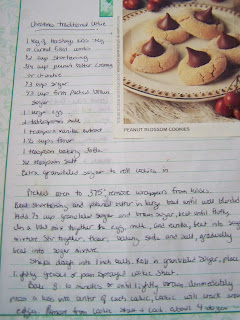 Christmas Traditional
1 bag of Hershey's Kiss
1/2 cup shortening
3/4 cup peanut butter creamy
1/3 cup sugar
1/3 cup firm packed brown
sugar
1 large egg
2 tablespoon milk
1 teaspoon vanilla extract
1 1/2 cups flour
1 teaspoon baking soda
1/2 teaspoon salt
Extra granulated sugar to roll cookie in
PEANUT BLOSSOM COOKIES
Preheat oven to 375° remove wrappers from kisses.
Beat shortening and peanut butter in large bowl until well blended
Add 1/3 cup granulated sugar and brown sugar, beat until fluffy.
In a bowl mix together the egg, milk, and vanilla, beat into sugar
mixture. Stir together flour, baking soda and salt, gradually
beat into sugar mixture.
Shape dough into 1 inch balls. Roll in granulated sugar, place
lightly grease or pam sprayed cookie sheet.
Bake 8-10 minutes or until lightly brown. Immediately
press a kiss into center of each cookie, cookie will crack around
edges. Remove from cookie sheet